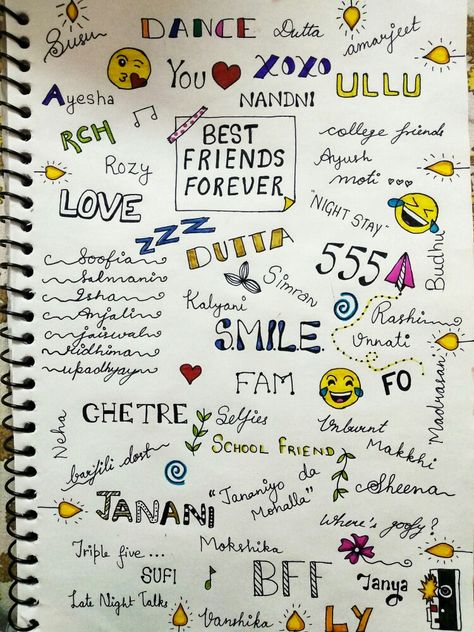 Susu
DANCE
Dutta
amarjeet
YOU
XOXO
ULLU
Ayesha
NANDNI
RCH
BEST
FRIENDS
FOREVER
college friends
Rozy
Ayush
moti
LOVE
"NIGHT STAY"
Budhu
ZZZ
DUTTA
555
Soofia
Salmani
Isha
Anjali
jaiswal
Ridhima
upadhyay
Simran
Kalyani
Rashi
Unnati
S.M.I.L.E.
Madrasan
FAM
FO
CHETRE
Selfies
Unburnt
Makkhi
Neha
SCHOOL FRIEND
barfili dost
Sheena
JANANI
"Jananiyo da
Mohalla"
Where's goofy?
Triple five ...
Mokshika
SUFI
BFF
Tanya
Late Night Talks
Vanshika
LY